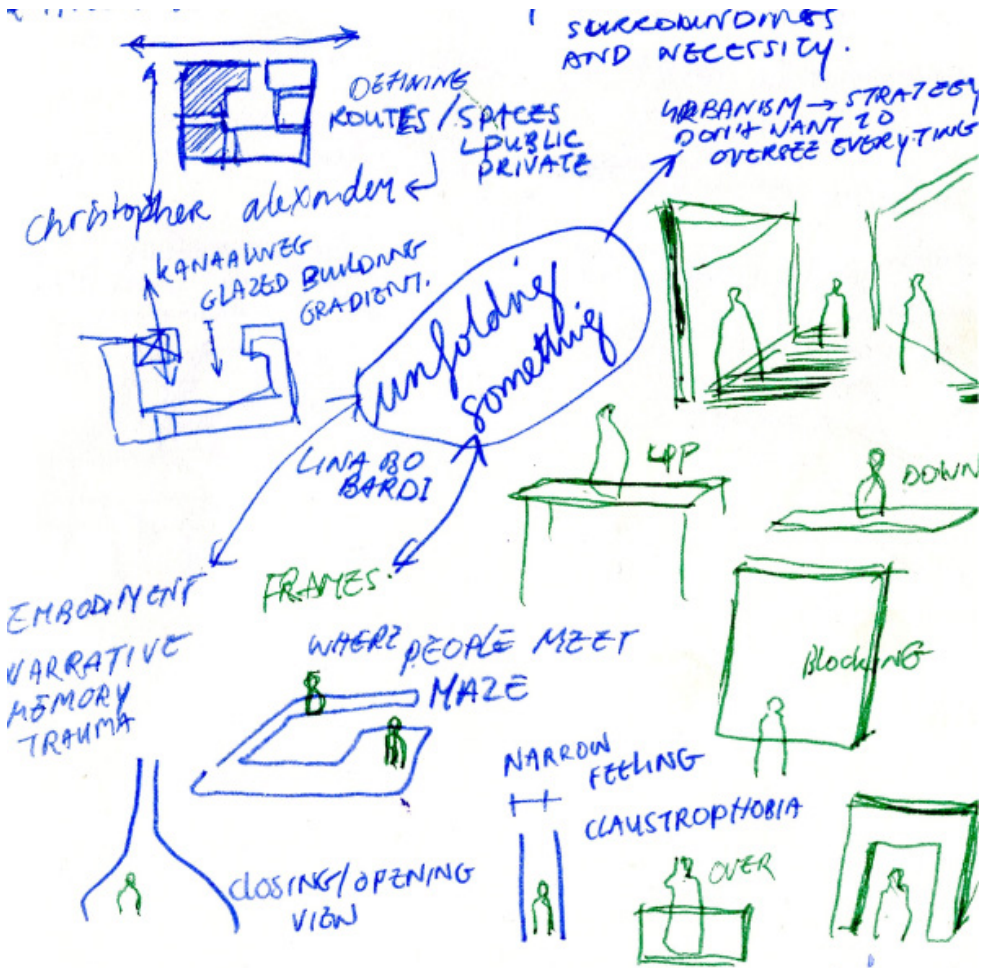 SURROUNDINGS
AND NECESSITY.
DEFINING
ROUTES / SPACES
PUBLIC
PRIVATE
christopher alexander
URBANISM → STRATEGY
DON'T WANT TO
OVERSEE EVERYTING
KANAALWEG
GLAZED BUILDING
GRADIENT.
unfolding
something
LINA BO
BARDI
UPP
DOWN
EMBODIMENT
FRAMES.
NARRATIVE
MEMORY
TRAUMA
WHERE PEOPLE MEET
MAZE
BlocKING
NARROW
FEELING
CLAUSTROPHOBIA
CLOSING/OPENING
VIEW
OVER